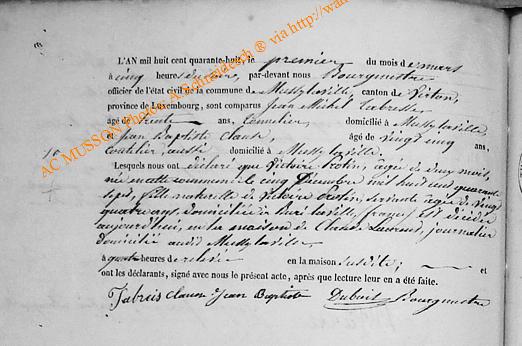 L'AN mil huit cent quarante-huit, le premier du mois de mars
à cinq heures du soir, par-devant nous Bourgmestre
officier de l'état civil de la commune de Mussy la ville, canton de Virton,
province de Luxembourg, sont comparus Jean Michel
âgé de trente ans, domicilié à Mussy la ville
et Jean Baptiste Claude, âgé de vingt cinq ans,
aussi domicilié à Mussy la ville.
Lesquels nous ont déclaré que Victoire âgée de deux mois,
née en cette commune le cinq Décembre mil huit cent quarante
sept, fille naturelle de Victoire servante âgée de vingt
quatre ans, domiciliée à la ville (france) est décédée
aujourd'hui, en la maison de Claude Laurent, journalier
domicilié audit Mussy la ville
à quatre heures de relevée en la maison susdite; et
ont les déclarants, signé avec nous le présent acte, après que lecture leur en a été faite.
Claude Jean Baptiste Dubois Bourgmestre
AC MUSSON Photos A.Schneider.h ® via http://wa